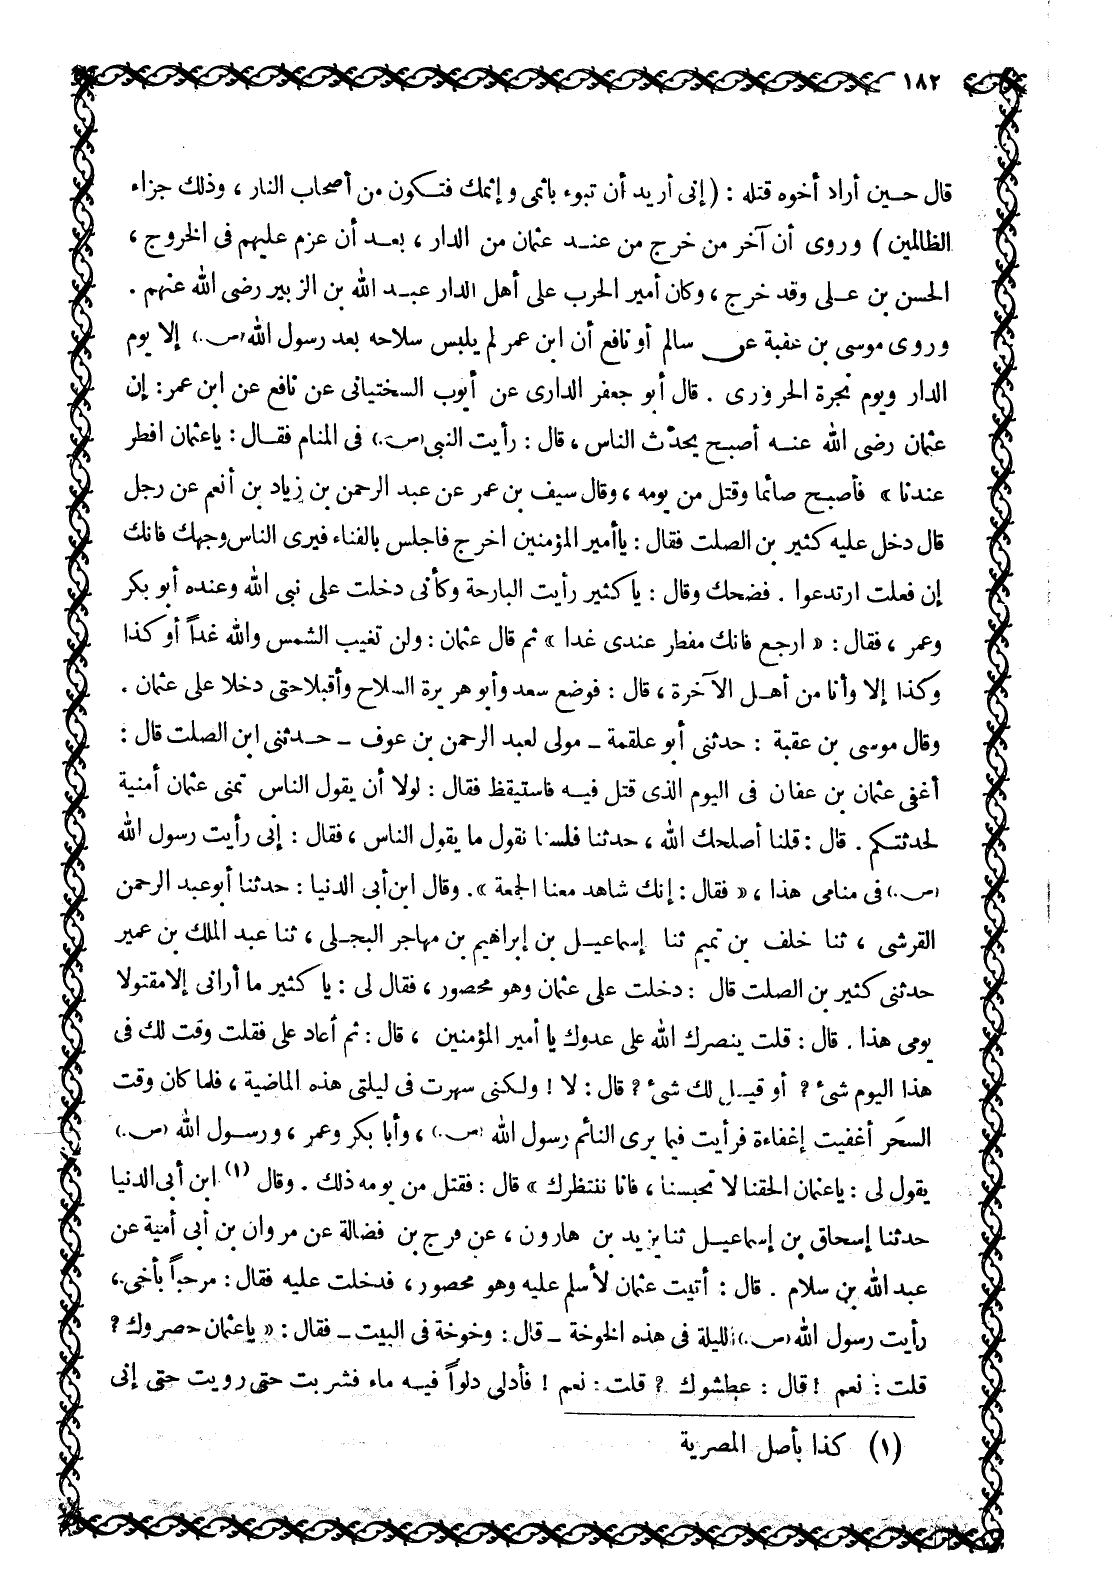 ١٨٢
قال حين أراد أخوه قتله : ( إنى أريد أن تبوء بأثمى وإثمك فتكون من أصحاب النار ، وذلك جزاء
الظالمين ) وروى أن آخر من خرج من عند عثمان من الدار ، بعد أن عزم عليهم فى الخروج ،
الحسن بن على وقد خرج ، وكان أمير الحرب على أهل الدار عبد الله بن الزبير رضى الله عنهم .
وروى موسى بن عقبة عن سالم أو نافع أن ابن عمر لم يلبس سلاحه بعد رسول الله (ص.) إلا يوم
الدار ويوم نجرة الحرورى . قال أبو جعفر الدارى عن أيوب السختيانى عن نافع عن ابن عمر : إن
عثمان رضى الله عنه أصبح يحدّث الناس ، قال : رأيت النبى (ص.) فى المنام فقال : ياعثمان افطر
عندنا » فأصبح صائما وقتل من يومه ، وقال سيف بن عمر عن عبد الرحمن بن زياد بن أنعم عن رجل
قال دخل عليه كثير بن الصلت فقال : ياأمير المؤمنين اخرج فاجلس بالفناء فيرى الناس وجهك فانك
إن فعلت ارتدعوا . فضحك وقال : ياكثير رأيت البارحة وكأنى دخلت على نبى الله وعنده أبو بكر
وعمر ، فقال : « ارجع فانك مفطر عندى غدا » ثم قال عثمان : ولن تغيب الشمس والله غداً أو كذا
وكذا إلا وأنا من أهل الآخرة ، قال : فوضع سعد وأبو هريرة السلاح وأقبلا حتى دخلا على عثمان .
وقال موسى بن عقبة : حدثنى أبو علقمة ـ مولى لعبد الرحمن بن عوف ـ حدثنى ابن الصلت قال :
أغفى عثمان بن عفان فى اليوم الذى قتل فيه فاستيقظ فقال : لولا أن يقول الناس تمنى عثمان أمنية
لحدثتكم . قال : قلنا أصلحك الله ، حدثنا فلسنا نقول ما يقول الناس ، فقال : إنى رأيت رسول الله
(ص.) فى منامى هذا ، « فقال : إنك شاهد معنا الجمعة » . وقال ابن أبى الدنيا : حدثنا أبو عبد الرحمن
القرشى ، ثنا خلف بن تميم ثنا إسماعيل بن إبراهيم بن مهاجر البجلى ، ثنا عبد الملك بن عمير
حدثنى كثير بن الصلت قال : دخلت على عثمان وهو محصور ، فقال لى : يا كثير ما أرانى إلا مقتولا
يومى هذا . قال : قلت ينصرك الله على عدوك يا أمير المؤمنين ، قال : ثم أعاد على فقلت وقت لك فى
هذا اليوم شىء ? أو قيل لك شىء ? قال : لا ! ولكنى سهرت فى ليلتى هذه الماضية ، فلما كان وقت
السحَر أغفيت إغفاءة فرأيت فيما يرى النائم رسول الله (ص.) ، وأبا بكر وعمر ، ورسول الله (ص.)
يقول لى : ياعثمان الحقنا لا تحبسنا ، فانا ننتظرك » قال : فقتل من يومه ذلك . وقال (١) ابن أبى الدنيا
حدثنا إسحاق بن إسماعيل ثنا يزيد بن هارون ، عن فرج بن فضالة عن مروان بن أبى أمية عن
عبد الله بن سلام . قال : أتيت عثمان لأسلم عليه وهو محصور ، فدخلت عليه فقال : مرحباً بأخى ،
رأيت رسول الله (ص.) الليلة فى هذه الخوخة ـ قال : وخوخة فى البيت ـ فقال : « ياعثمان حصروك ?
قلت : نعم ! قال : عطشوك ? قلت : نعم ! فأدلى دلواً فيه ماء فشربت حتى رويت حتى إنى
(١) كذا بأصل المصرية